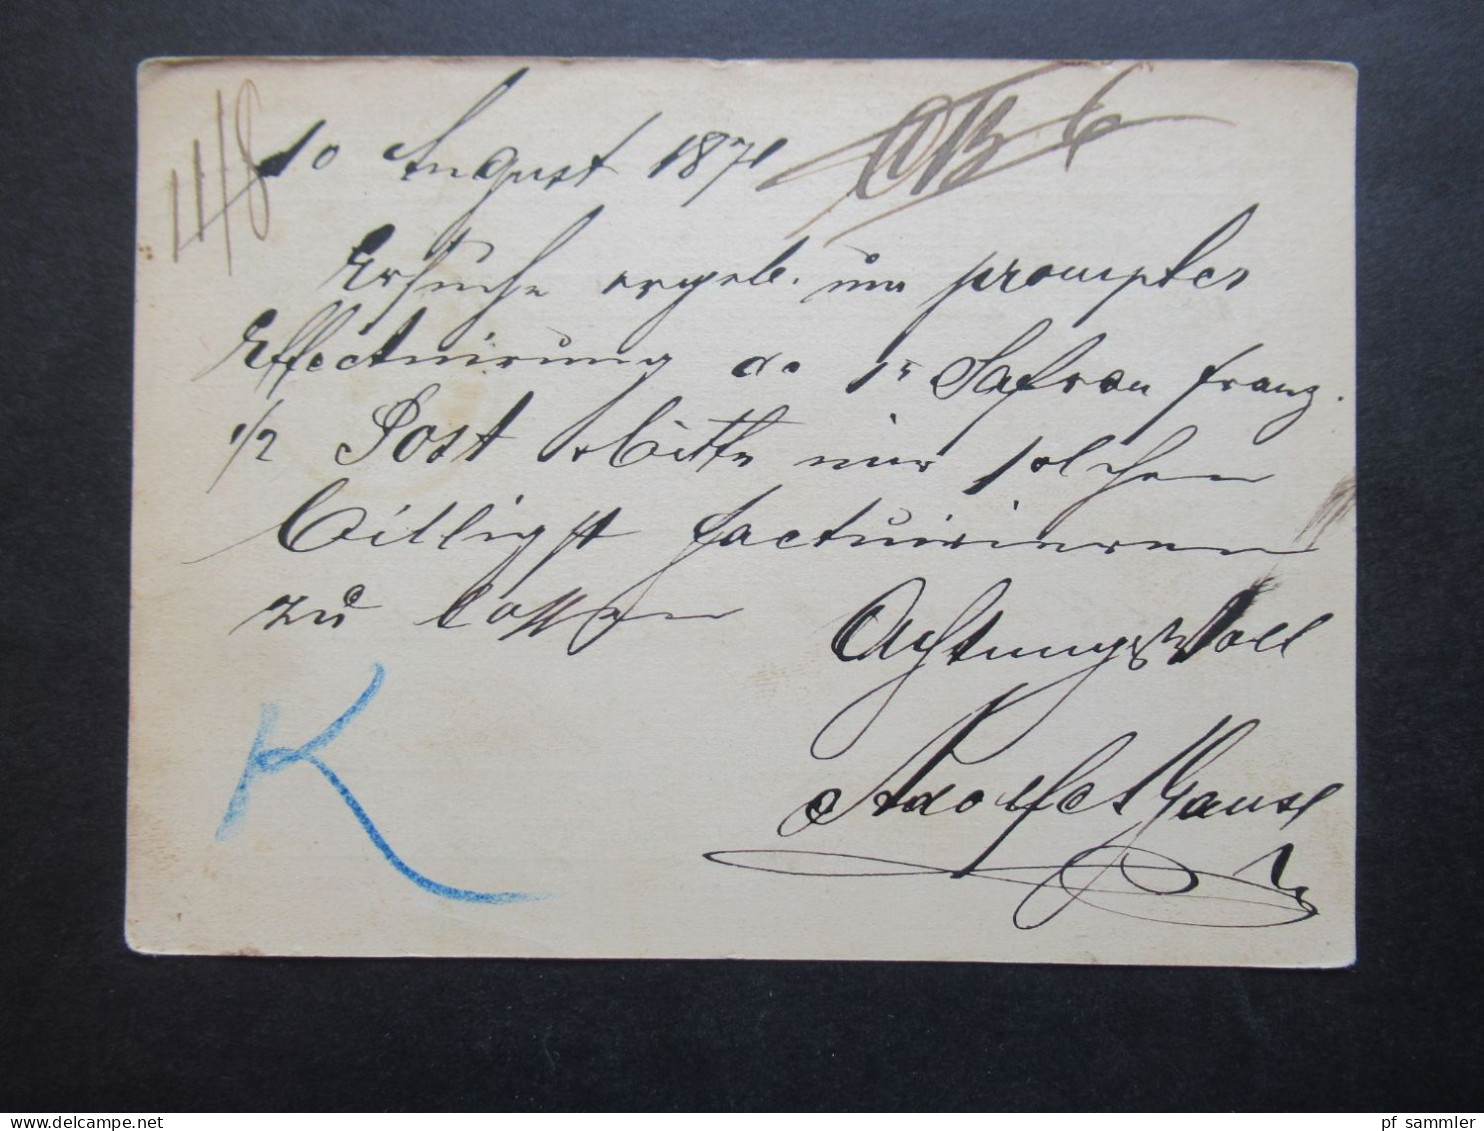 11/8
10 August 1871
Ersuche ergeb. um promptes
Effectuirung do 1 Safran franz.
1/2 Post erbitte mir solchen
billigst facturiren
zu lassen
Achtungsvoll
Adolf
K
© pf_sammler
www.delcampe.net
pf_sammler